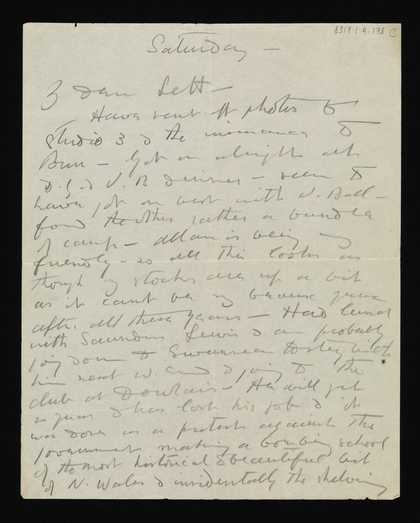 Saturday —
Dear Lett —
Have sent off photos to
Studio & the
— Got on alright with
D. J. & V. R — seem to
have got on best with V. Ball —
found the other rather a bundle
of camp — Allan is being v
friendly — so all this looks as
though my stocks are up a bit
as it cant be my because
after all these years — Had lunch
with Saunders Lewis & am probably
going down to Swansea to stay with
him next w end & going to the
club at Dowlais — He will get
a year & has lost his job & it
was done as a protest against the
government making a bombing school
of the most historical & beautiful bit
of N. Wales & incidentally the